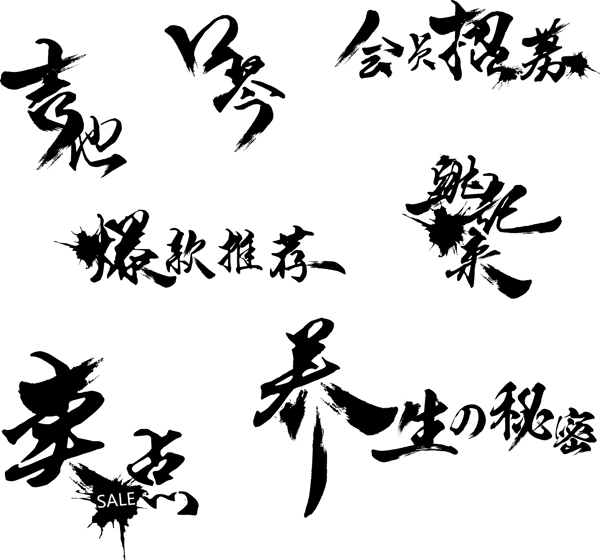 吉他
口琴
会员招募
爆款推荐
来
卖点
SALE
养生の秘密